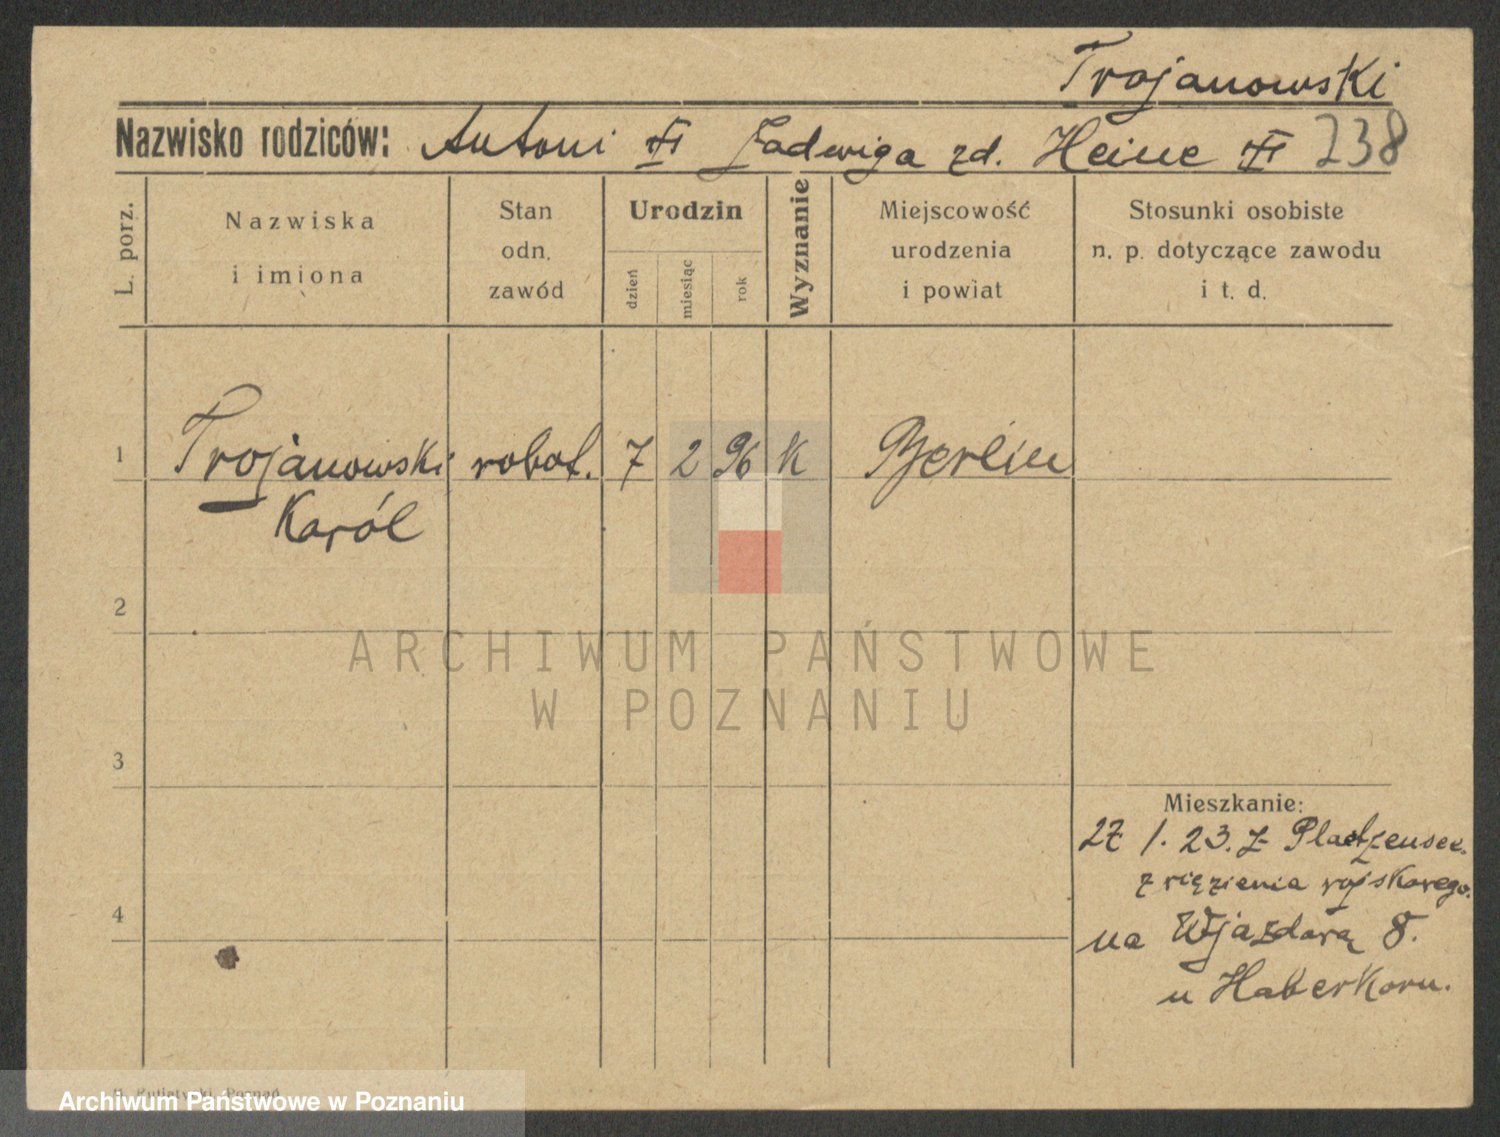 Trojanowski
Nazwisko rodziców: Antoni Jadwiga zd. Heine 238
L. porz.
Nazwiska
i imiona
Stan
odn.
zawód
Urodzin
dzień
miesiąc
rok
Wyznanie
Miejscowość
urodzenia
i powiat
Stosunki osobiste
n. p. dotyczące zawodu
i t. d.
1 Trojanowski robot. 7 2 96 K Berlin
Karól
2
ARCHIWUM PAŃSTWOWE
W POZNANIU
3
Mieszkanie:
27 1. 23. z
z więzienia wojskowego.
4
na Wjazdową 8.
u Haberkorn.
Archiwum Państwowe w Poznaniu